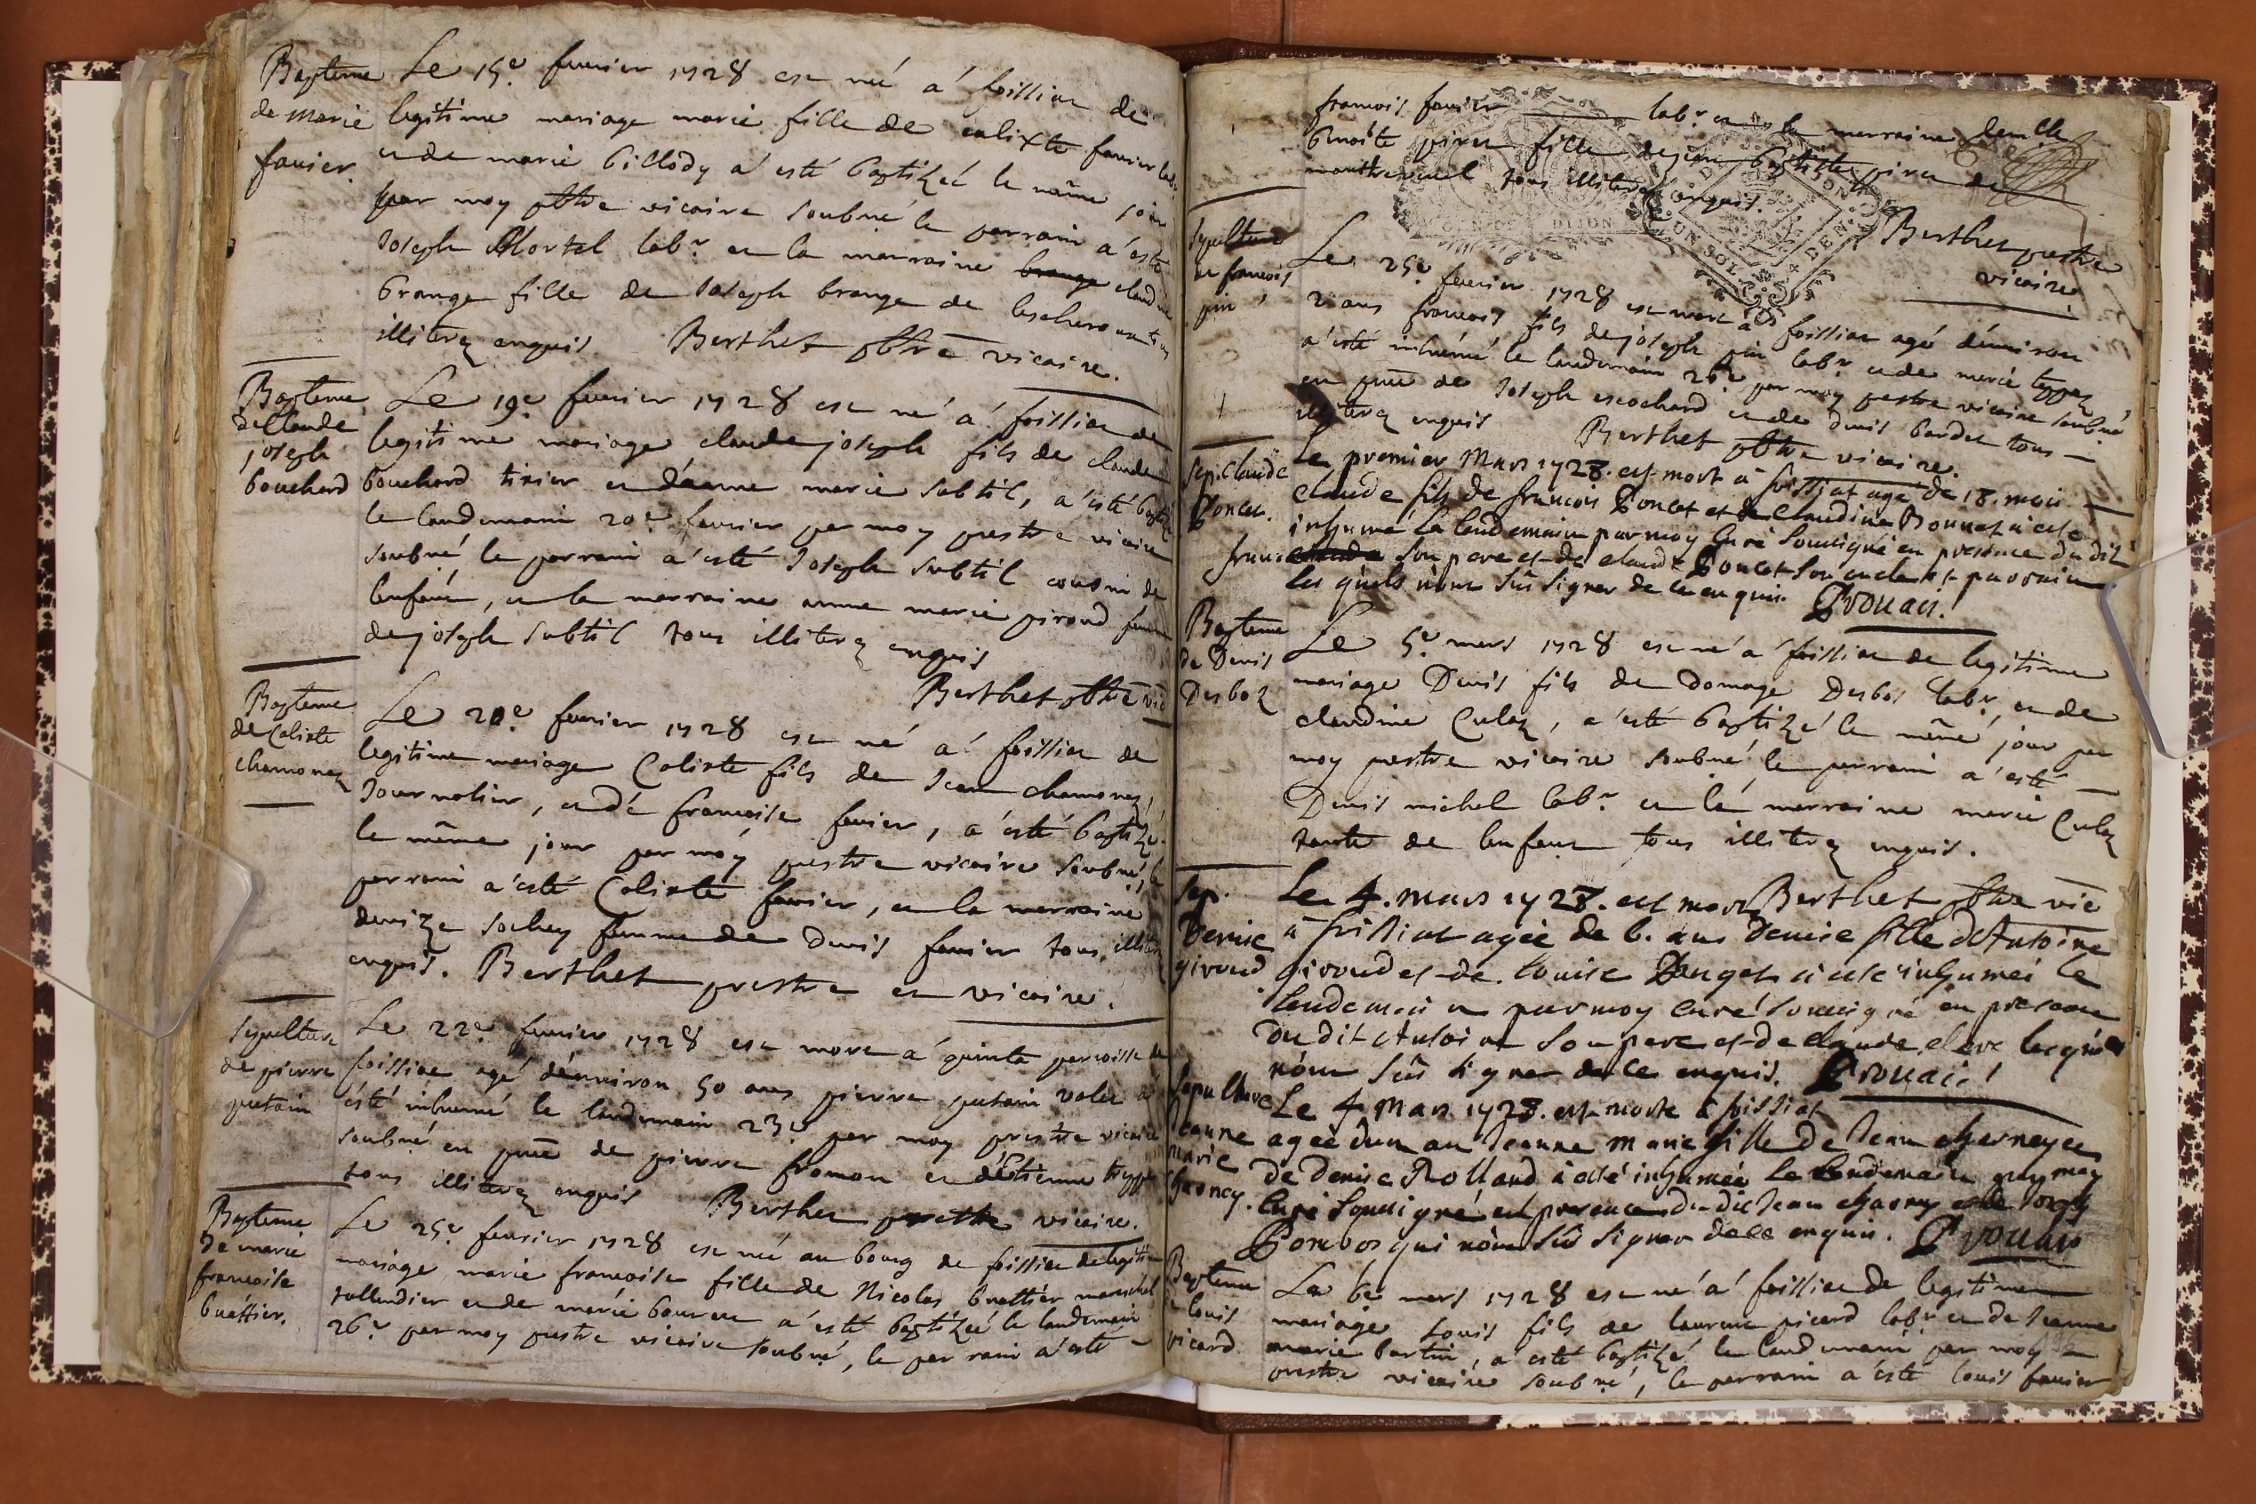 Bapteme
de marie
favier.
Le 15e fevrier 1728 est née á foissiat de
legitime mariage marie fille de calixte favier lab.
et de marie billody a esté baptizeé le même jour
par moy pbtre vicaire soubné le parrain a esté
Joseph Mortel labr et la marraine claudine
brange fille de Joseph brange de lescheroux tous
illiterez enquis Berthet pbtre vicaire.
Bapteme
de Claude
joseph
bouchard
Le 19e fevrier 1728 est né á foissiat de
legitime mariage claude joseph fils de claude
bouchard tixier et d'anne marie subtil, a esté baptizé
le landemain 20e fevrier par moy prestre vicaire
soubné, le parrain a esté Joseph subtil cousin de
lenfant, et la marraine anne marie piroud femme
de joseph subtil tous illiterez enquis
Berthet pbtre vic
Bapteme
de Calixte
chamonez
Le 20e fevrier 1728 est né á foissiat de
legitime mariage Calixte fils de Jean chamonez,
Journalier, et de francoise favier, a esté baptizé
le même jour par moy prestre vicaire soubné, le
parrain a esté Calixte favier, et la marraine
denize sochey femme de Denis favier tous illiterez
enquis. Berthet prestre et vicaire.
sepulture
de pierre
putain
Le 22e fevrier 1728 est mort a paroisse de
foissiat agé d'environ 50 ans pierre putain valet a
esté inhumé le landemain 23e par moy prestre vicaire
soubné en pñce de pierre froment et d'étienne
tous illiterez enquis Berthet prestre vicaire.
Bapteme
de marie
francoise
buattier.
Le 25e fevrier 1728 est née au bourg de foissiat de legitime
mariage marie francoise fille de Nicolas buattier mareschal
tallendier et de marie a esté baptizeé le landemain
26e par moy prestre vicaire soubné, le parrain a esté
francois favier labr et la marraine demlle
benoite piret fille de jean baptiste piret de
tous illiterez enquis.
Berthet prestre
vicaire
sepulture
de francois
pin
Le 25e fevrier 1728 est mort a foissiat agé d'environ
2 ans francois fils de joseph pin labr et de marie
a esté inhumé le landemain 26e par moy prestre vicaire soubné
en pñce de Joseph escochard et de denis bardet tous
illiterez enquis Berthet pbtre vicaire.
Sep. Claude
Poncet.
Le premier Mars 1728. est mort a foissiat agé de 18. mois
Claude fils de francois Poncet et de Claudine Bonnet a esté
inhumé le lendemain par moy Curé soussigné en presence du dit
francois son pere et de claude Poncet son oncle et parrain
les quels n'ont sçu signer de ce enquis.
Bapteme
de Denis
Desboz
Le 5e mars 1728 est né a foissiat de legitime
mariage Denis fils de Domage Desbois labr, et de
claudine Culaz, a esté baptizé le même jour par
moy prestre vicaire soubné, le parrain a esté
Denis michel labr et la marraine marie Culaz
tante de lenfant tous illiterez enquis.
Berthet pbtre vic
Sep.
Denise
giroud
Le 4. mars 1728. est morte
a foissiat agée de 6. ans Denise fille d'Antoine
giroud et de Louise Danget a esté inhumée le
lendemain par moy curé soussigné en presence
du dit Antoine son pere et de claude clere lesquels
n'ont sçu signer de ce enquis.
Sepulture
Jeanne
marie
Le 4 Mars 1728. est morte a foissiat
agée d'un an Jeanne marie fille de Jean
de Denise Rolland a esté inhumée le lendemain par moy
Curé soussigné en presence du dit Jean et de
qui n'ont sçu signer de ce enquis.
Bapteme
de louis
picard
Le 6e mars 1728 est né á foissiat de legitime
mariage Louis fils de laurent picard labr et de Jeanne
marie bartin, a esté baptizé le landemain par moy
prestre vicaire soubné, le parrain a esté louis favier